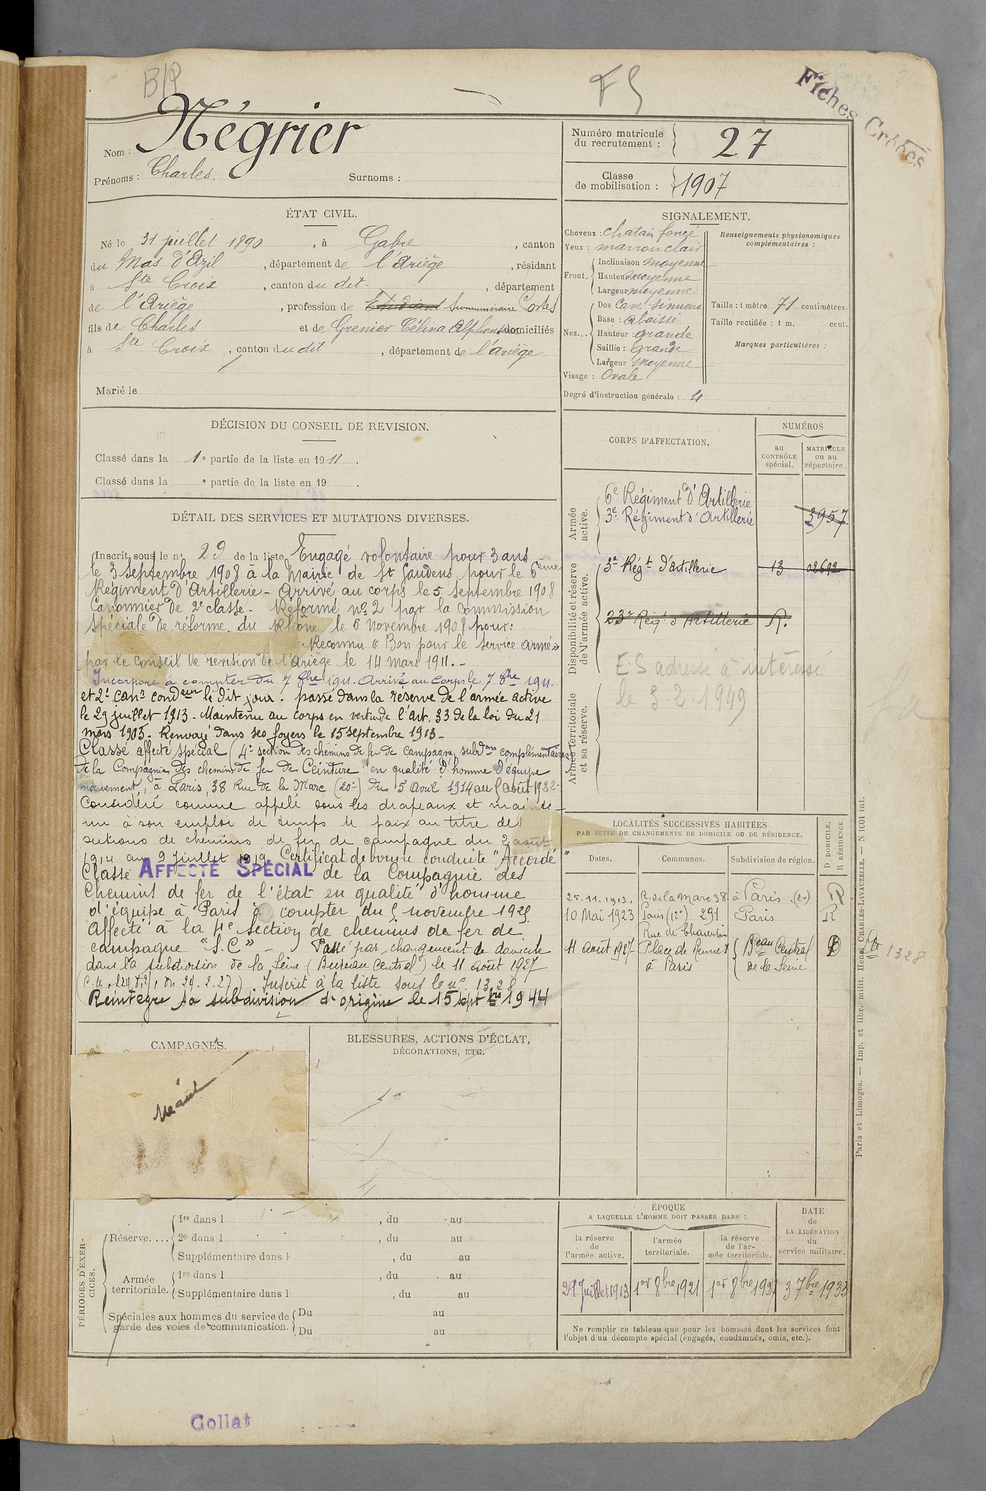 B/P
FS
Fiches Créées
Nom : Négrier
Prénoms : Charles.
Surnoms :
Numéro matricule du recrutement : 27
Classe de mobilisation : 1907
ÉTAT CIVIL.
Né le 31 juillet 1890, à Gabre, canton
du Mas d'Azil, département de l'Ariège, résidant
à Ste Croix, canton du dit, département
de l'Ariège, profession de Etudiant Surnuméraire Postes
fils de Charles et de Grenier Célina Alphonsine domiciliés
à Ste Croix, canton du dit, département de l'ariège
Marié le
SIGNALEMENT.
Cheveux : chatain foncé
Yeux : marron clair
Front. Inclinaison moyenne
Hauteur moyenne
Largeur moyenne
Nez... Dos Cave Sinueux
Base : abaissé
Hauteur grande
Saillie : grande
Largeur moyenne
Visage : Ovale
Renseignements physionomiques complémentaires :
Taille : 1 mètre 71 centimètres.
Taille rectifiée : 1 m. cent.
Marques particulières :
Degré d'instruction générale : 4
DÉCISION DU CONSEIL DE REVISION.
Classé dans la 1e partie de la liste en 1911.
Classé dans la e partie de la liste en 19 .
DÉTAIL DES SERVICES ET MUTATIONS DIVERSES.
Inscrit sous le n° 29 de la liste. Engagé volontaire pour 3 ans
le 3 septembre 1908 à la Mairie de St Gaudens pour le 6eme
Régiment d'Artillerie - Arrivé au corps le 5 septembre 1908
Canonnier de 2e classe - Réformé n° 2 par la commission
spéciale de réforme du Rhône le 6 novembre 1908 pour:
Reconnu « Bon pour le service armé »
par le Conseil de revision de l'Ariège le 14 mars 1911. -
Incorporé à compter du 7 8bre 1911. Arrivé au corps le 7 8bre 1911.
et 2e canr condeur le dit jour. passé dans la réserve de l'armée active
le 29 juillet 1913. Maintenu au corps en vertu de l'art. 33 de la loi du 21
mars 1905. Renvoyé dans ses foyers le 15 septembre 1913 -
Classé affecté spécial (4e section des chemins de fer de campagne, subdons complémentaires
de la Compagnie des chemins de fer de Ceinture) en qualité d'homme d'équipe
mouvement, à Paris, 38 Rue de la Mare (20e) du 5 Avril 1914 au 9 aout 1922
Considéré comme appelé sous les drapeaux et mainte
nu à son emploi de temps de paix au titre des
sections de chemins de fer de campagne du 2 aout
1914 au 9 juillet 1919. Certificat de bonne conduite "Accordé"
Classé AFFECTÉ SPÉCIAL de la Compagnie des
Chemins de fer de l'état en qualité d'homme
d'équipe à Paris à compter du 5 novembre 1925
Affecté à la 4e section de chemins de fer de
campagne "S.C" - Passé par changement de domicile
dans la subdivision de la Seine (Bureau Central) le 11 août 1927
Inscrit à la liste sous le n° 1328
Réintègre sa subdivision d'origine le 15 septbre 1944
CORPS D'AFFECTATION.
NUMÉROS
au CONTRÔLE spécial.
MATRICULE ou au répertoire.
Armée active.
6e Régiment d'Artillerie
3e Régiment d'Artillerie 3957
Disponibilité et réserve de l'armée active.
3e Régt d'Artillerie 13 02692
23e Régt d'Artillerie R.
Armée territoriale et sa réserve.
E.S adressé à intéressé
le 3.2.1949
LOCALITÉS SUCCESSIVES HABITÉES
PAR SUITE DE CHANGEMENTS DE DOMICILE OU DE RÉSIDENCE.
Dates. Communes. Subdivision de région. D DOMICILE. R RÉSIDENCE.
25.11.1913. R. de la Mare 38 à Paris (20e) R
10 Mai 1923 Paris (12e) 291 Rue de Charenton Paris R
11 août 1927 Place de Rennes à Paris Beau Central de la Seine D
1328
Paris et Limoges. — Imp. et libr. milit. Henri CHARLES-LAVAUZELLE. — N° 1601 int.
CAMPAGNES.
Néant
BLESSURES, ACTIONS D'ÉCLAT,
DÉCORATIONS, ETC.
PÉRIODES D'EXERCICES.
Réserve.... 1re dans l , du au
2e dans l , du au
Supplémentaire dans l , du au
Armée territoriale. 1re dans l , du au
Supplémentaire dans l , du au
Spéciales aux hommes du service de garde des voies de communication. Du au
Du au
ÉPOQUE
A LAQUELLE L'HOMME DOIT PASSER DANS :
la réserve de l'armée active.
l'armée territoriale.
la réserve de l'armée territoriale.
DATE de LA LIBÉRATION du service militaire.
29 Juillet 1913 1er 8bre 1921 1er 8bre 1927 3 7bre 1933
Ne remplir ce tableau que pour les hommes dont les services font
l'objet d'un décompte spécial (engagés, condamnés, omis, etc.).
Collat